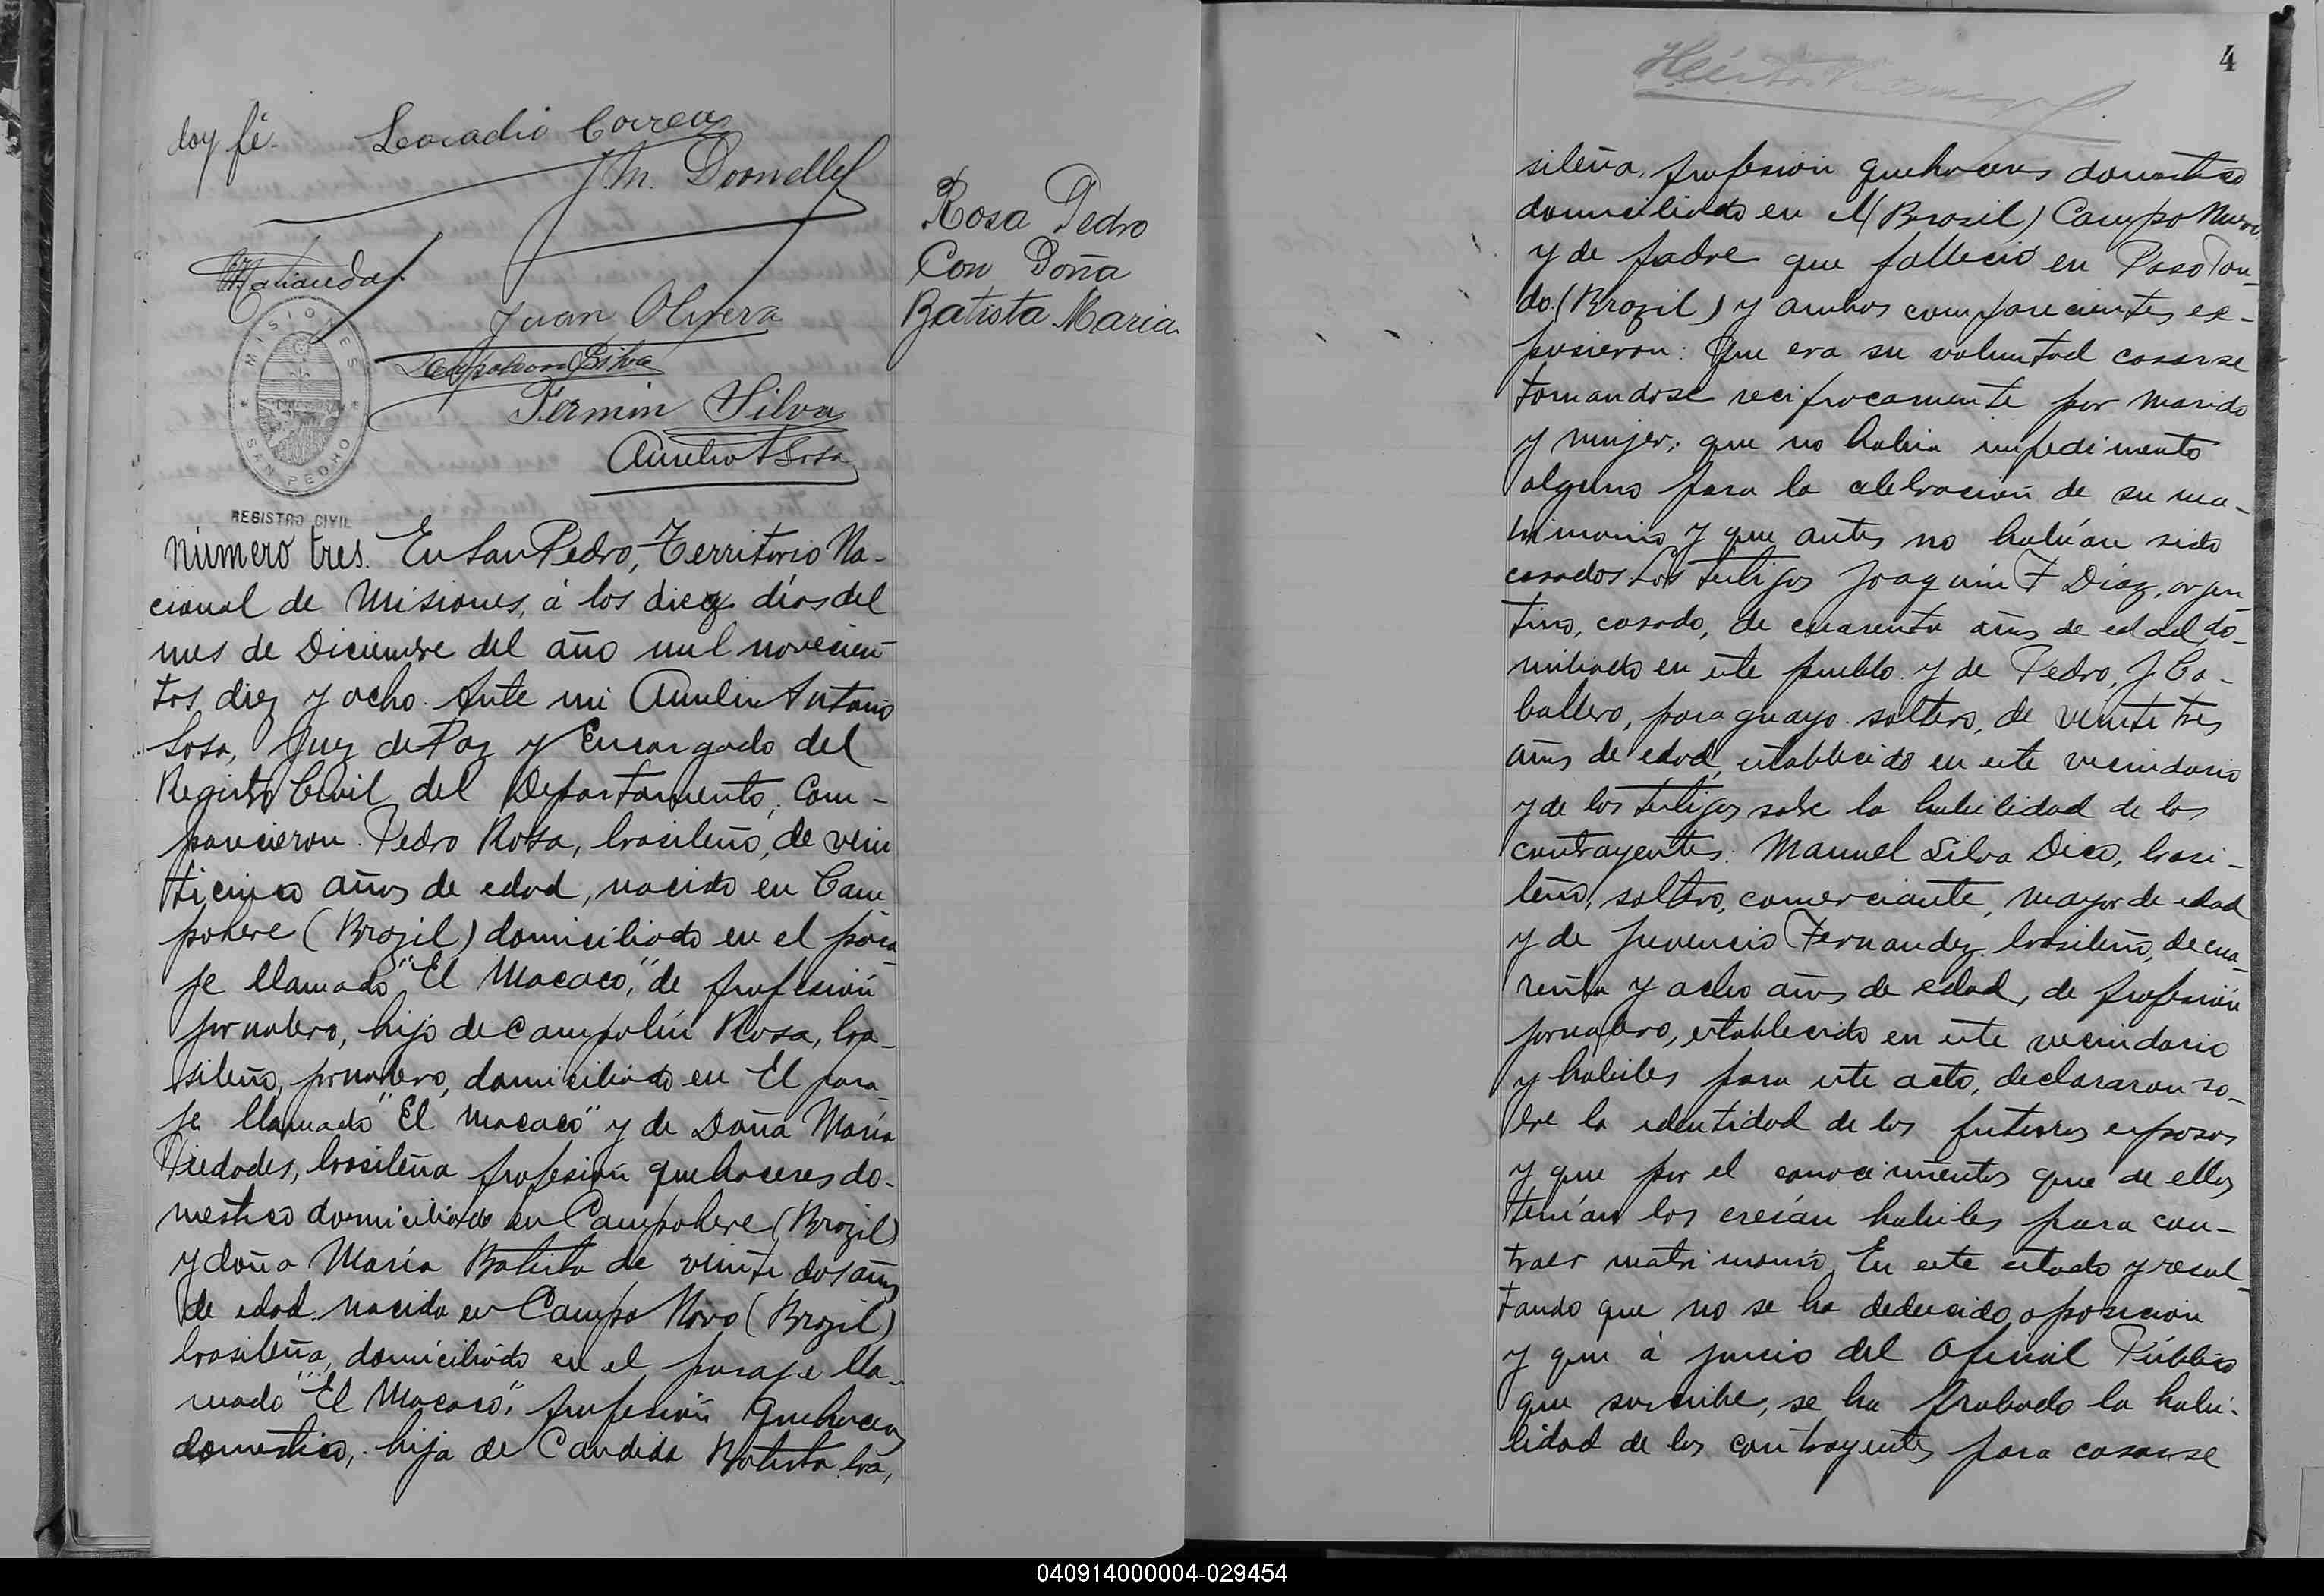 doy fé. Leocadio Correa
J. M. Dornelles
Juan Olivera
Napoleon Silva
Fermin Silva
Aurelio A Sosa
MISIONES
SAN PEDRO
REGISTRO CIVIL
Rosa Pedro
Con Doña
Batista Maria
número tres. En San Pedro, Territorio Na-
cional de Misiones, á los diez días del
mes de Diciembre del año mil novecien-
tos diez y ocho. Ante mi Aurelio Antonio
Sosa, Juez de Paz y Encargado del
Registro Civil del Departamento, Com-
parecieron. Pedro Rosa, brasileño, de vein
ticinco años de edad, nacido en Cam
pohere (Brazil) domiciliado en el para
je llamado "El Macaco," de profesión
jornalero, hijo de Campolín Rosa, bra-
sileño, jornalero, domiciliado en El para-
je llamado "El Macaco" y de Doña María
Piedades, brasileña profesión quehaceres do-
mestico domiciliado en Campohere (Brazil)
y doña María Batista de veinte dos años
de edad. nacida en Campo Novo (Brazil)
brasileña, domiciliado en el paraje lla-
mado "El Macaco", profesión quehaceres
domestico, hija de Candida Batista bra,
4
sileña, profesión quehaceres domestico
domiciliado en el (Brazil) Campo Novo
y de padre que falleció en Paso Fon-
do. (Brazil) y ambos comparecientes ex-
pusieron: Que era su voluntad casarse
tomandose reciprocamente por marido
y mujer; que no habia impedimento
alguno para la celebración de su ma-
trimonio y que antes no habían sido
casados. Los testigos Joaquín F Díaz, argen
tino, casado, de cuarenta años de edad do-
miciliado en este pueblo y de Pedro, J Ca-
ballero, paraguayo. soltero, de veinte tres
años de edad, establecido en este vecindario
y de los testigos sobre la habilidad de los
contrayentes: Manuel Silva Dico, brasi-
leño, soltero, comerciante, mayor de edad
y de Juvencio Fernandez. brasileño, de cua-
renta y ocho años de edad, de profesión
jornalero, establecido en este vecindario
y habiles para este acto, declararon so-
bre la identidad de los futuros esposos
y que por el conocimientos que de ellos
tenían los creían habiles para con-
traer matrimonio. En este estado y resul-
tando que no se ha deducido oposicion
y que á juicio del Oficial Público
que suscribe, se ha probado la habi-
lidad de los contrayentes para casarse
040914000004-029454